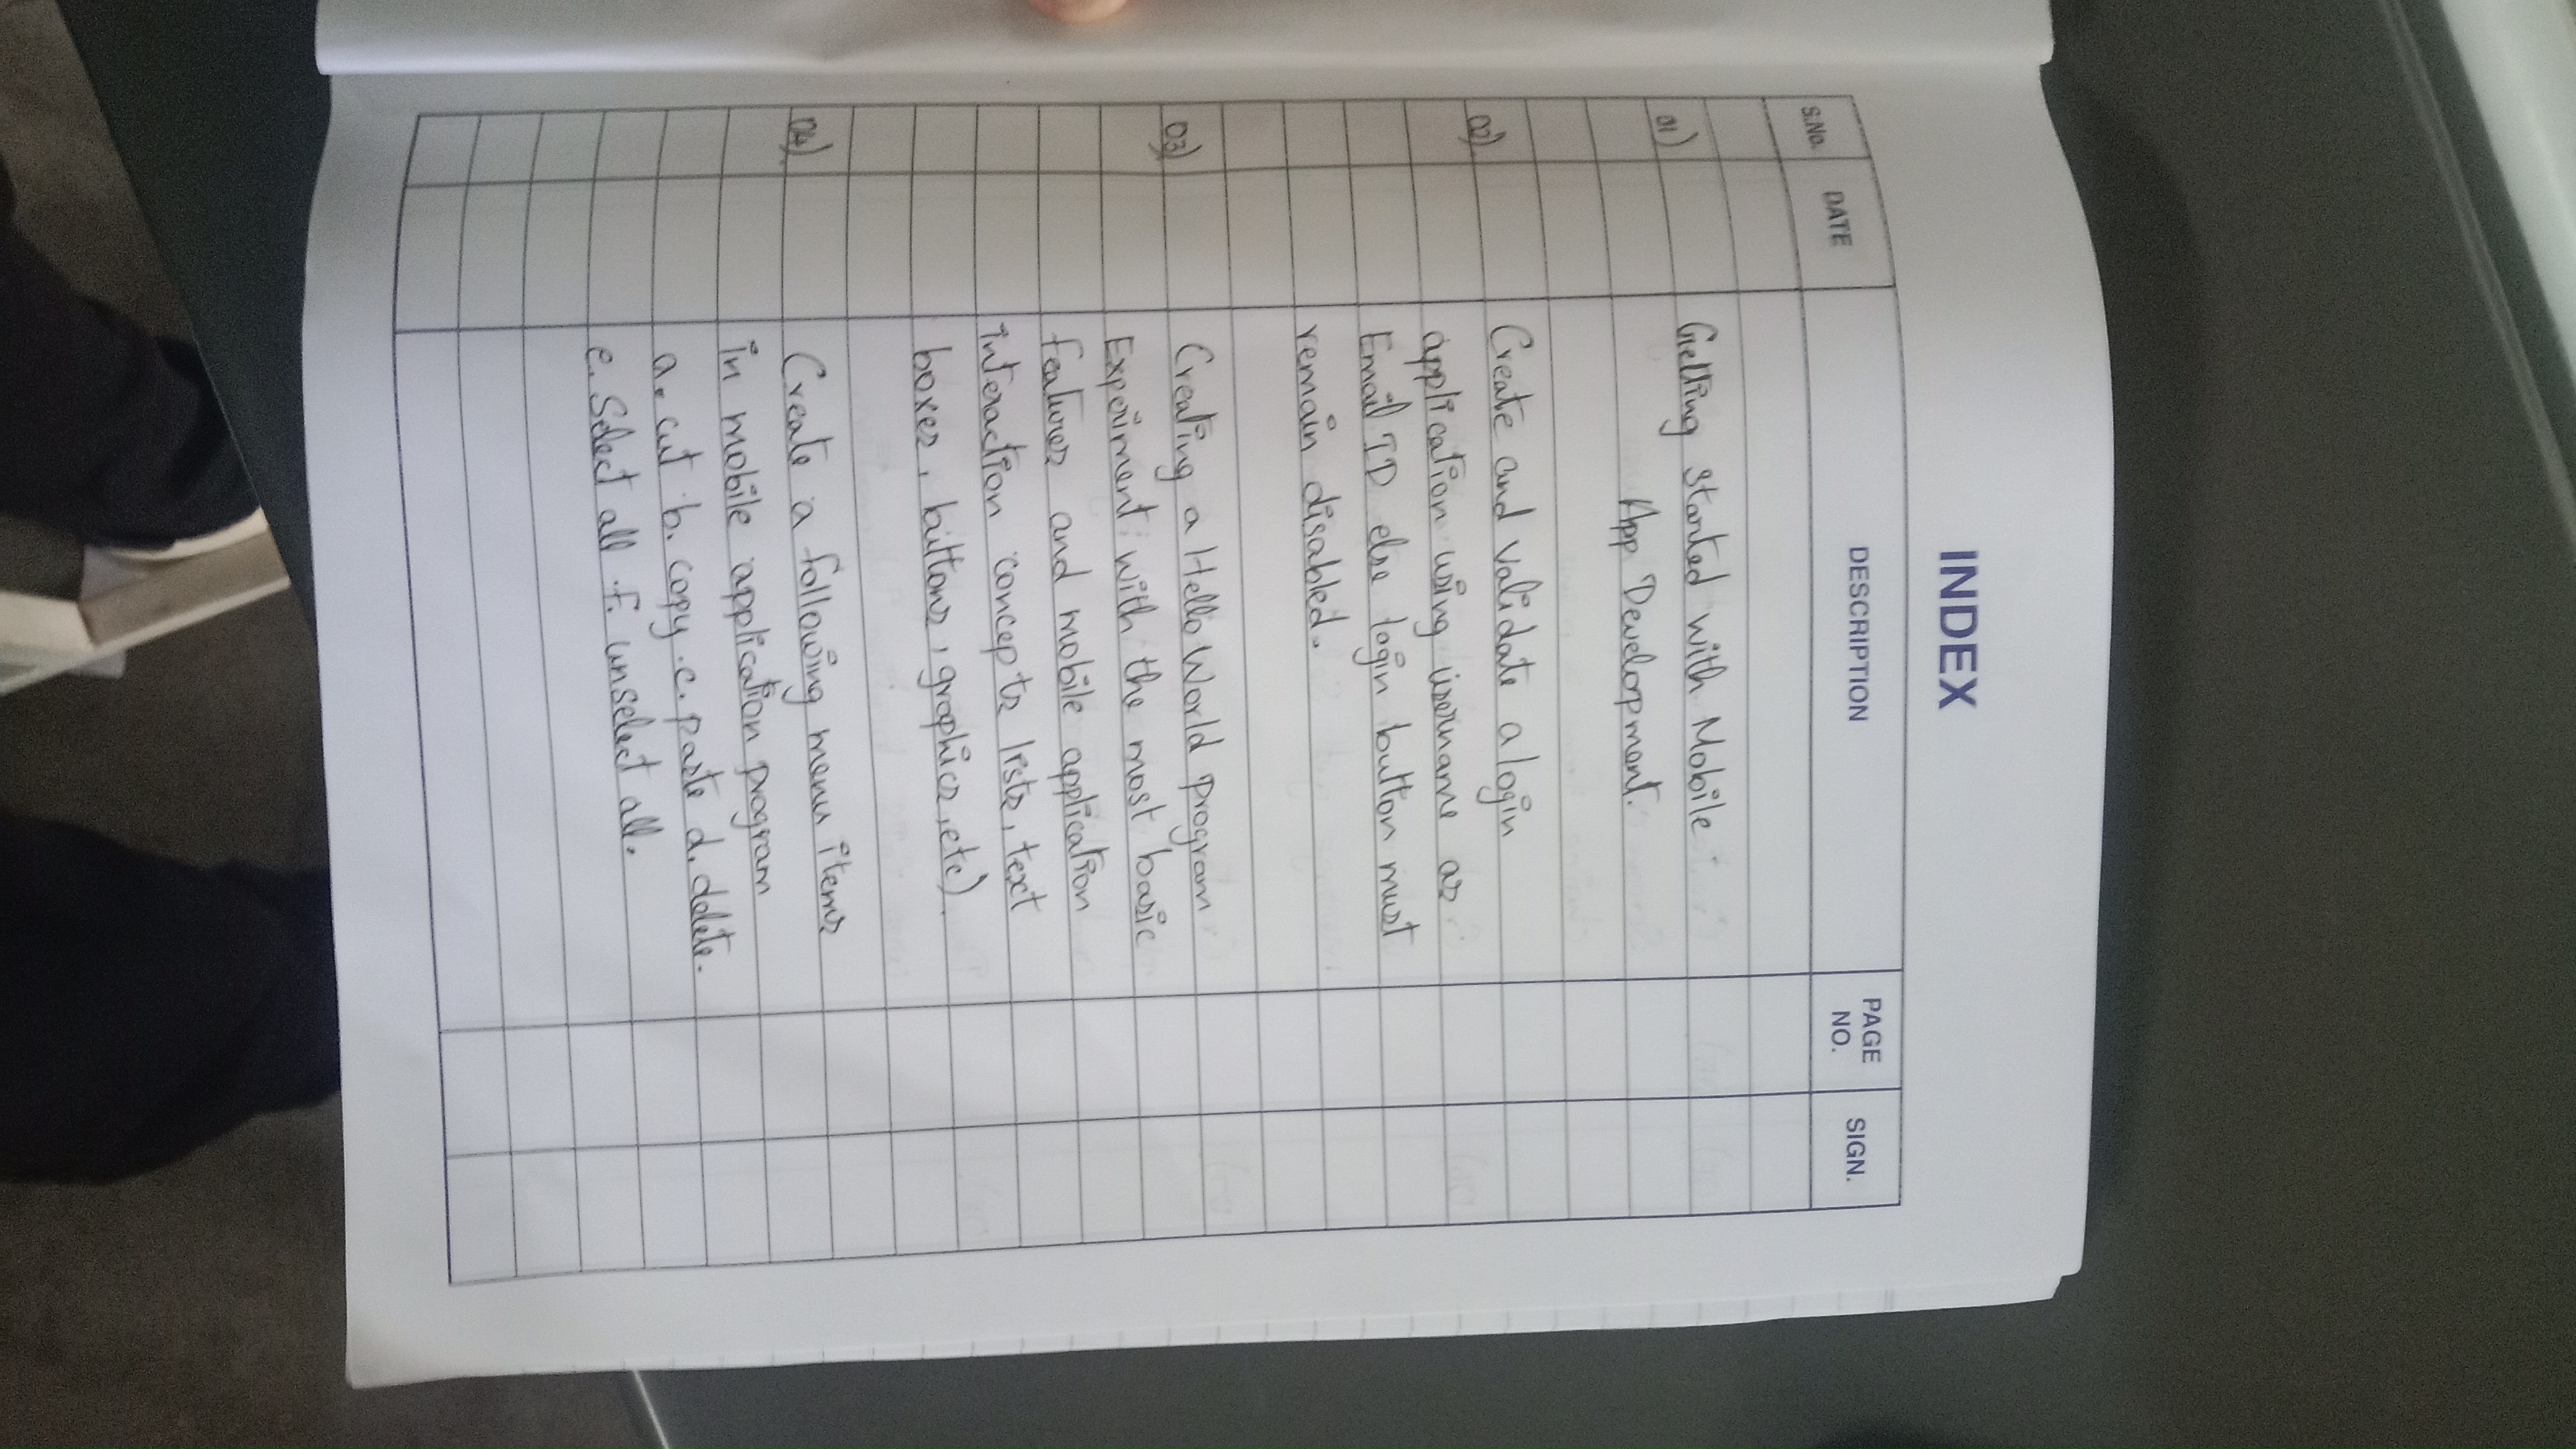 INDEX
S.No. DATE DESCRIPTION PAGE NO. SIGN.
01) Getting started with Mobile
App Development.
02) Create and validate a login
application using username as
Email ID else login button must
remain disabled.
03) Creating a Hello World program
Experiment with the most basic
features and mobile application
interaction concepts lists, text
boxes, buttons, graphics, etc).
04) Create a following menu items
in mobile application program
a. cut b. copy . c. paste d. delete.
e. Select all . f. unselect all.